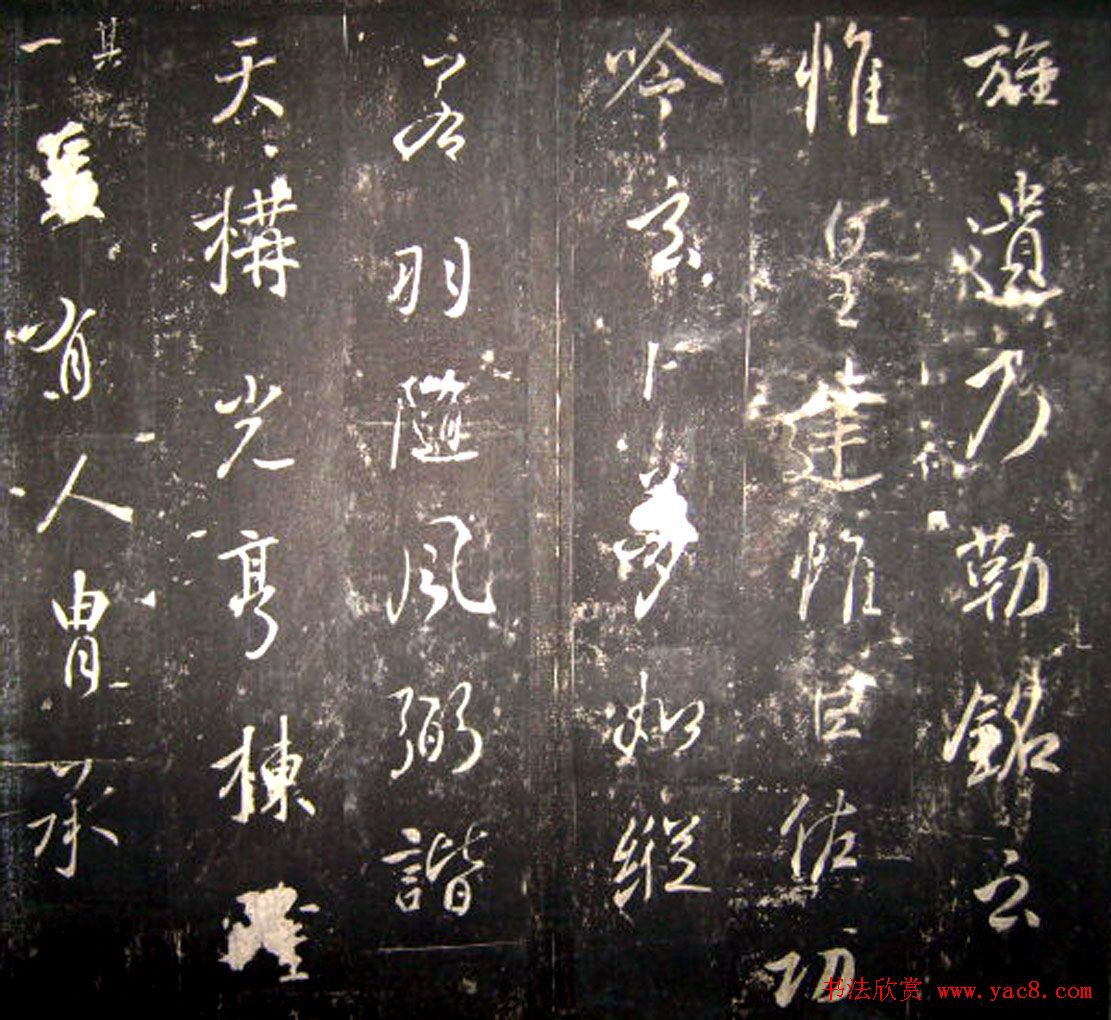 旌遺勒銘云
惟皇建惟臣佐功
吟玄卜夢如縱
若羽隨風弼諧
天構光亨棟隆
其一人胄承
书法欣赏 www.yac8.com